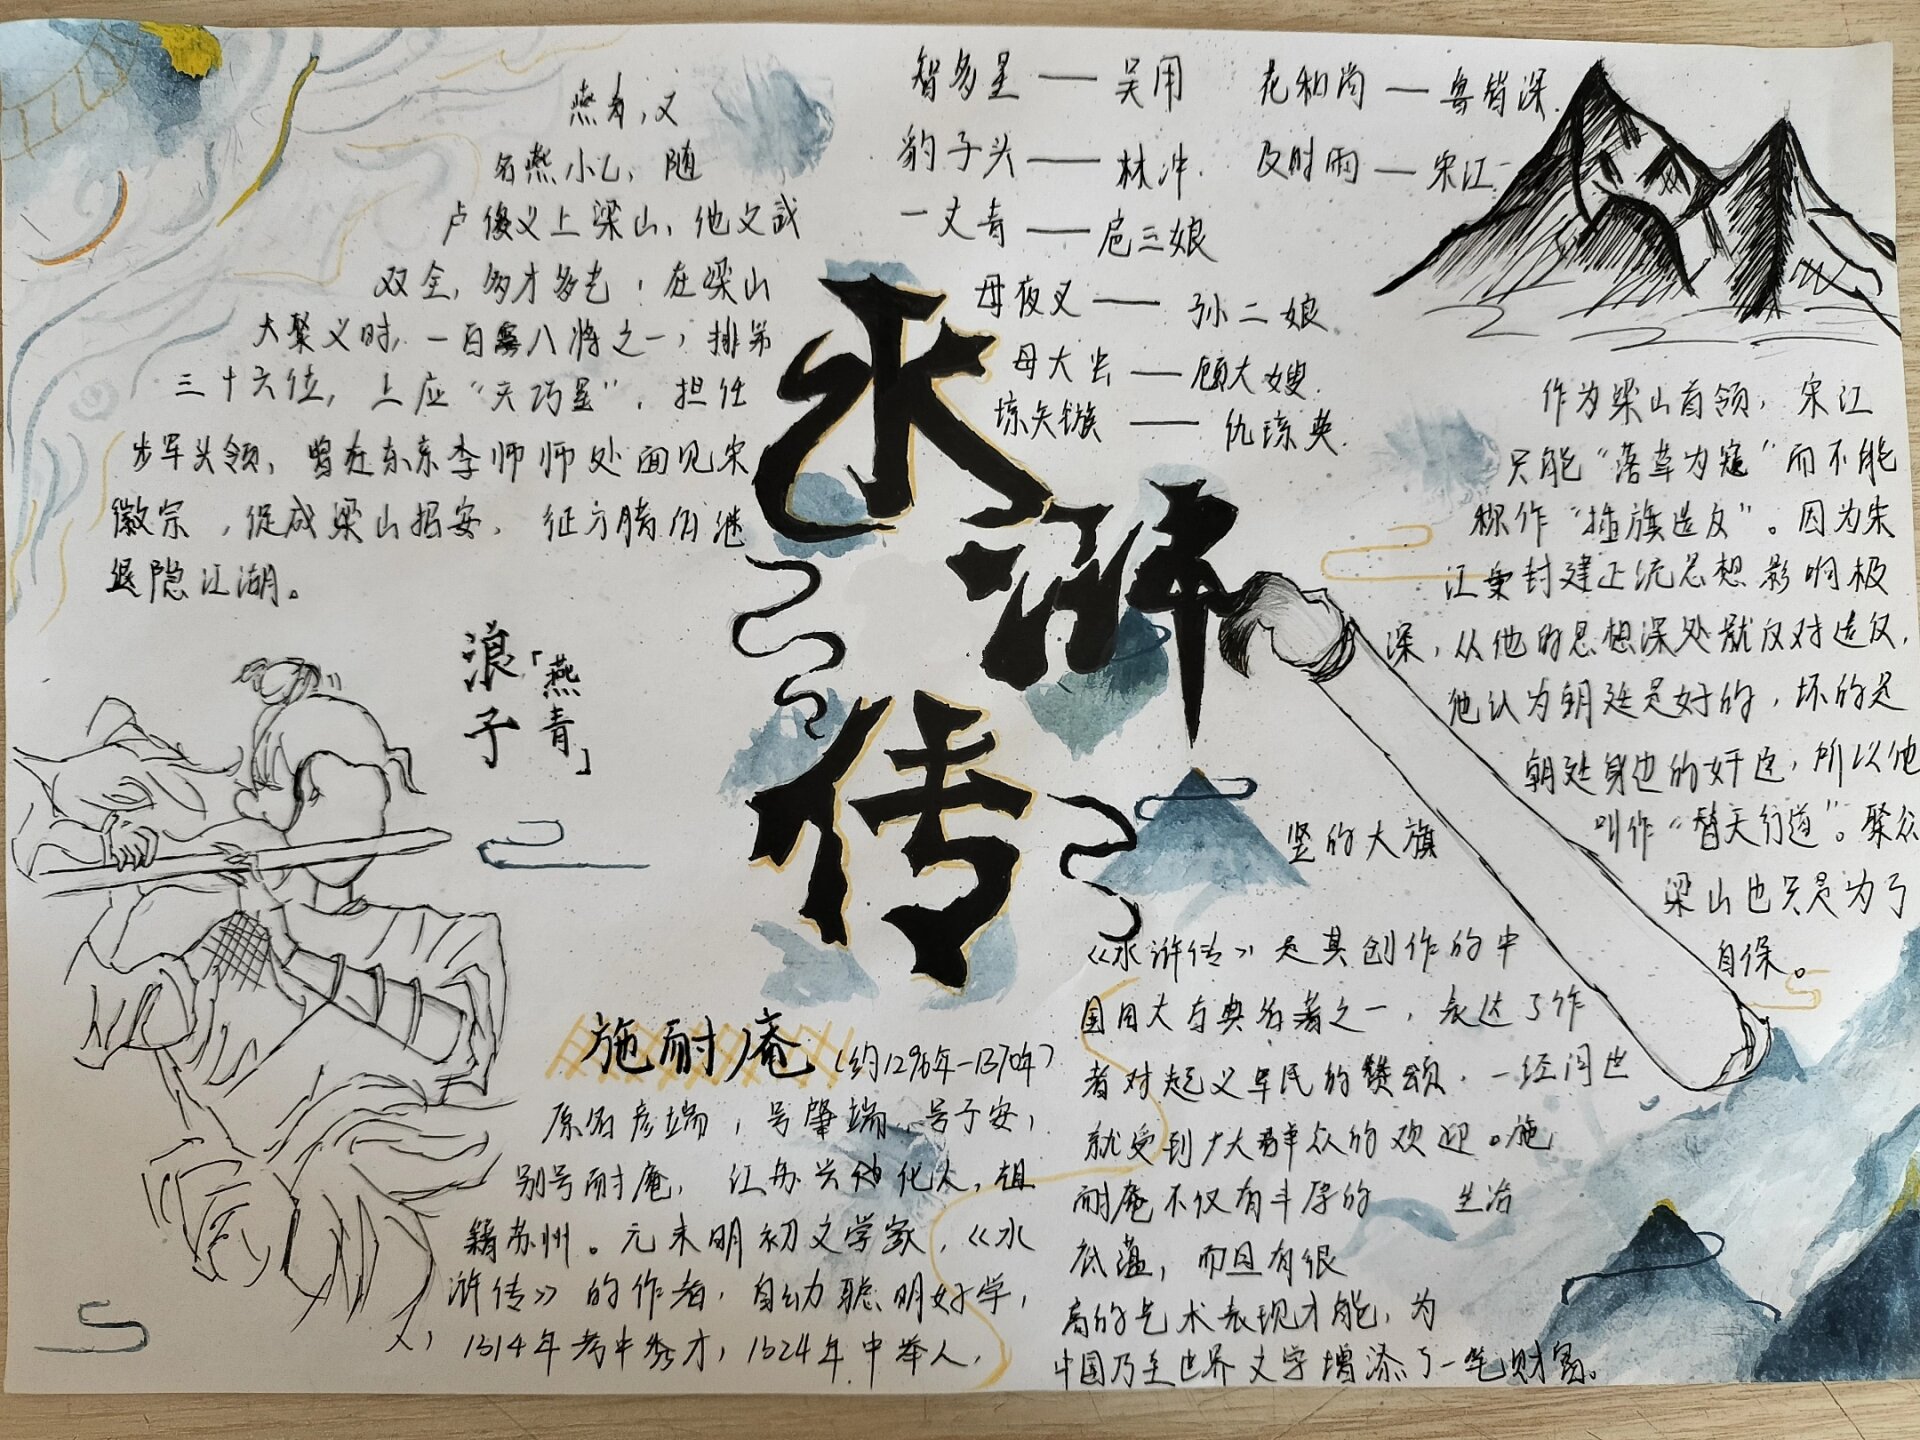 燕青，又
名燕小乙，随
卢俊义上梁山，他文武
双全，多才多艺，在梁山
大聚义时，一百零八将之一，排第
三十六位，上应“天巧星”，担任
步军头领，曾在东京李师师处面见宋
徽宗，促成梁山招安，征方腊后继
退隐江湖。
浪子
「燕青」
智多星——吴用
花和尚——鲁智深
豹子头——林冲
及时雨——宋江
一丈青——扈三娘
母夜叉——孙二娘
母大虫——顾大嫂
琼矢镞——仇琼英
水浒传
作为梁山首领，宋江
只能“落草为寇”而不能
称作“插旗造反”。因为宋
江受封建正统思想影响极
深，从他的思想深处就反对造反，
他认为朝廷是好的，坏的是
朝廷身边的奸臣，所以他
竖的大旗
叫作“替天行道”。聚众
梁山也只是为了
自保。
施耐庵（约1296年—1370年）
原名彦端，号肇端，号子安，
别号耐庵，江苏兴化人，祖
籍苏州。元末明初文学家，《水
浒传》的作者，自幼聪明好学，
1314年考中秀才，1324年中举人，
《水浒传》是其创作的中
国四大古典名著之一，表达了作
者对起义军民的赞颂，一经问世
就受到广大群众的欢迎。施
耐庵不仅有丰厚的 生活
底蕴，而且有很
高的艺术表现才能，为
中国乃至世界文字增添了一笔财富。